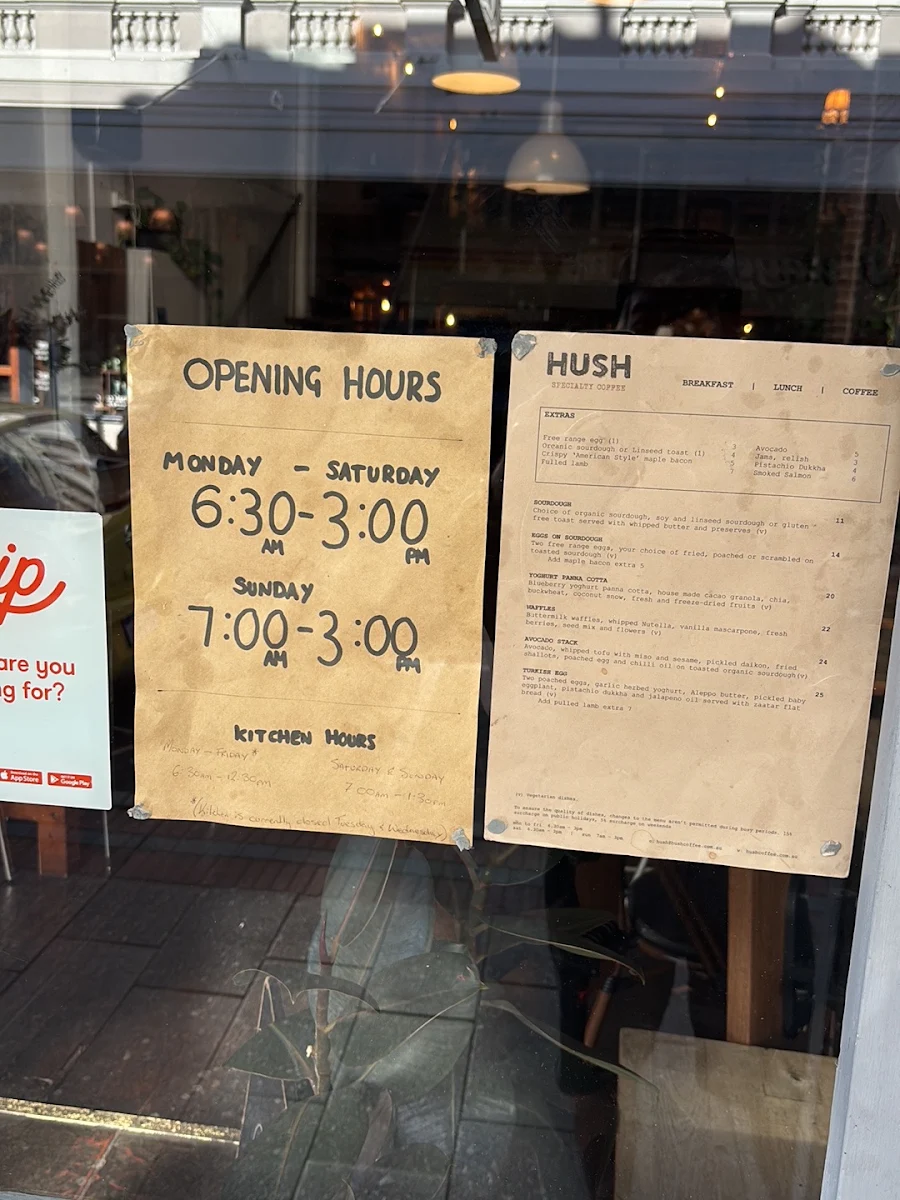 OPENING HOURS
MONDAY - SATURDAY
6:30 - 3:00
AM PM
SUNDAY
7:00 - 3:00
AM PM
KITCHEN HOURS
MONDAY - FRIDAY*
6:30AM - 12:30PM
SATURDAY & SUNDAY
7:00AM - 1:30PM
*(Kitchen is currently closed Tuesday & Wednesday)
HUSH
SPECIALTY COFFEE
BREAKFAST | LUNCH | COFFEE
EXTRAS
Free range egg (1) 3
Organic sourdough or Linseed toast (1) 4
Crispy 'American Style' maple bacon 5
Pulled lamb 7
Avocado 5
Jams, relish 3
Pistachio Dukkha 4
Smoked Salmon 6
SOURDOUGH 11
Choice of organic sourdough, soy and linseed sourdough or gluten -
free toast served with whipped butter and preserves (v)
EGGS ON SOURDOUGH 14
Two free range eggs, your choice of fried, poached or scrambled on
toasted sourdough (v)
Add maple bacon extra 5
YOGHURT PANNA COTTA 20
Blueberry yoghurt panna cotta, house made cacao granola, chia,
buckwheat, coconut snow, fresh and freeze-dried fruits (v)
WAFFLES 22
Buttermilk waffles, whipped Nutella, vanilla mascarpone, fresh
berries, seed mix and flowers (v)
AVOCADO STACK 24
Avocado, whipped tofu with miso and sesame, pickled daikon, fried
shallots, poached egg and chilli oil on toasted organic sourdough(v)
TURKISH EGG 25
Two poached eggs, garlic herbed yoghurt, Aleppo butter, pickled baby
eggplant, pistachio dukkha and jalapeno oil served with zaatar flat
bread (v)
Add pulled lamb extra 7
(v) Vegetarian dishes.
To ensure the quality of dishes, changes to the menu aren't permitted during busy periods. 15%
surcharge on public holidays, % surcharge on weekends
6.30am - 3pm | sun 7am - 3pm
hushcoffee.com.au
ip
are you
g for?
Download on the
App Store
GET IT ON
Google Play